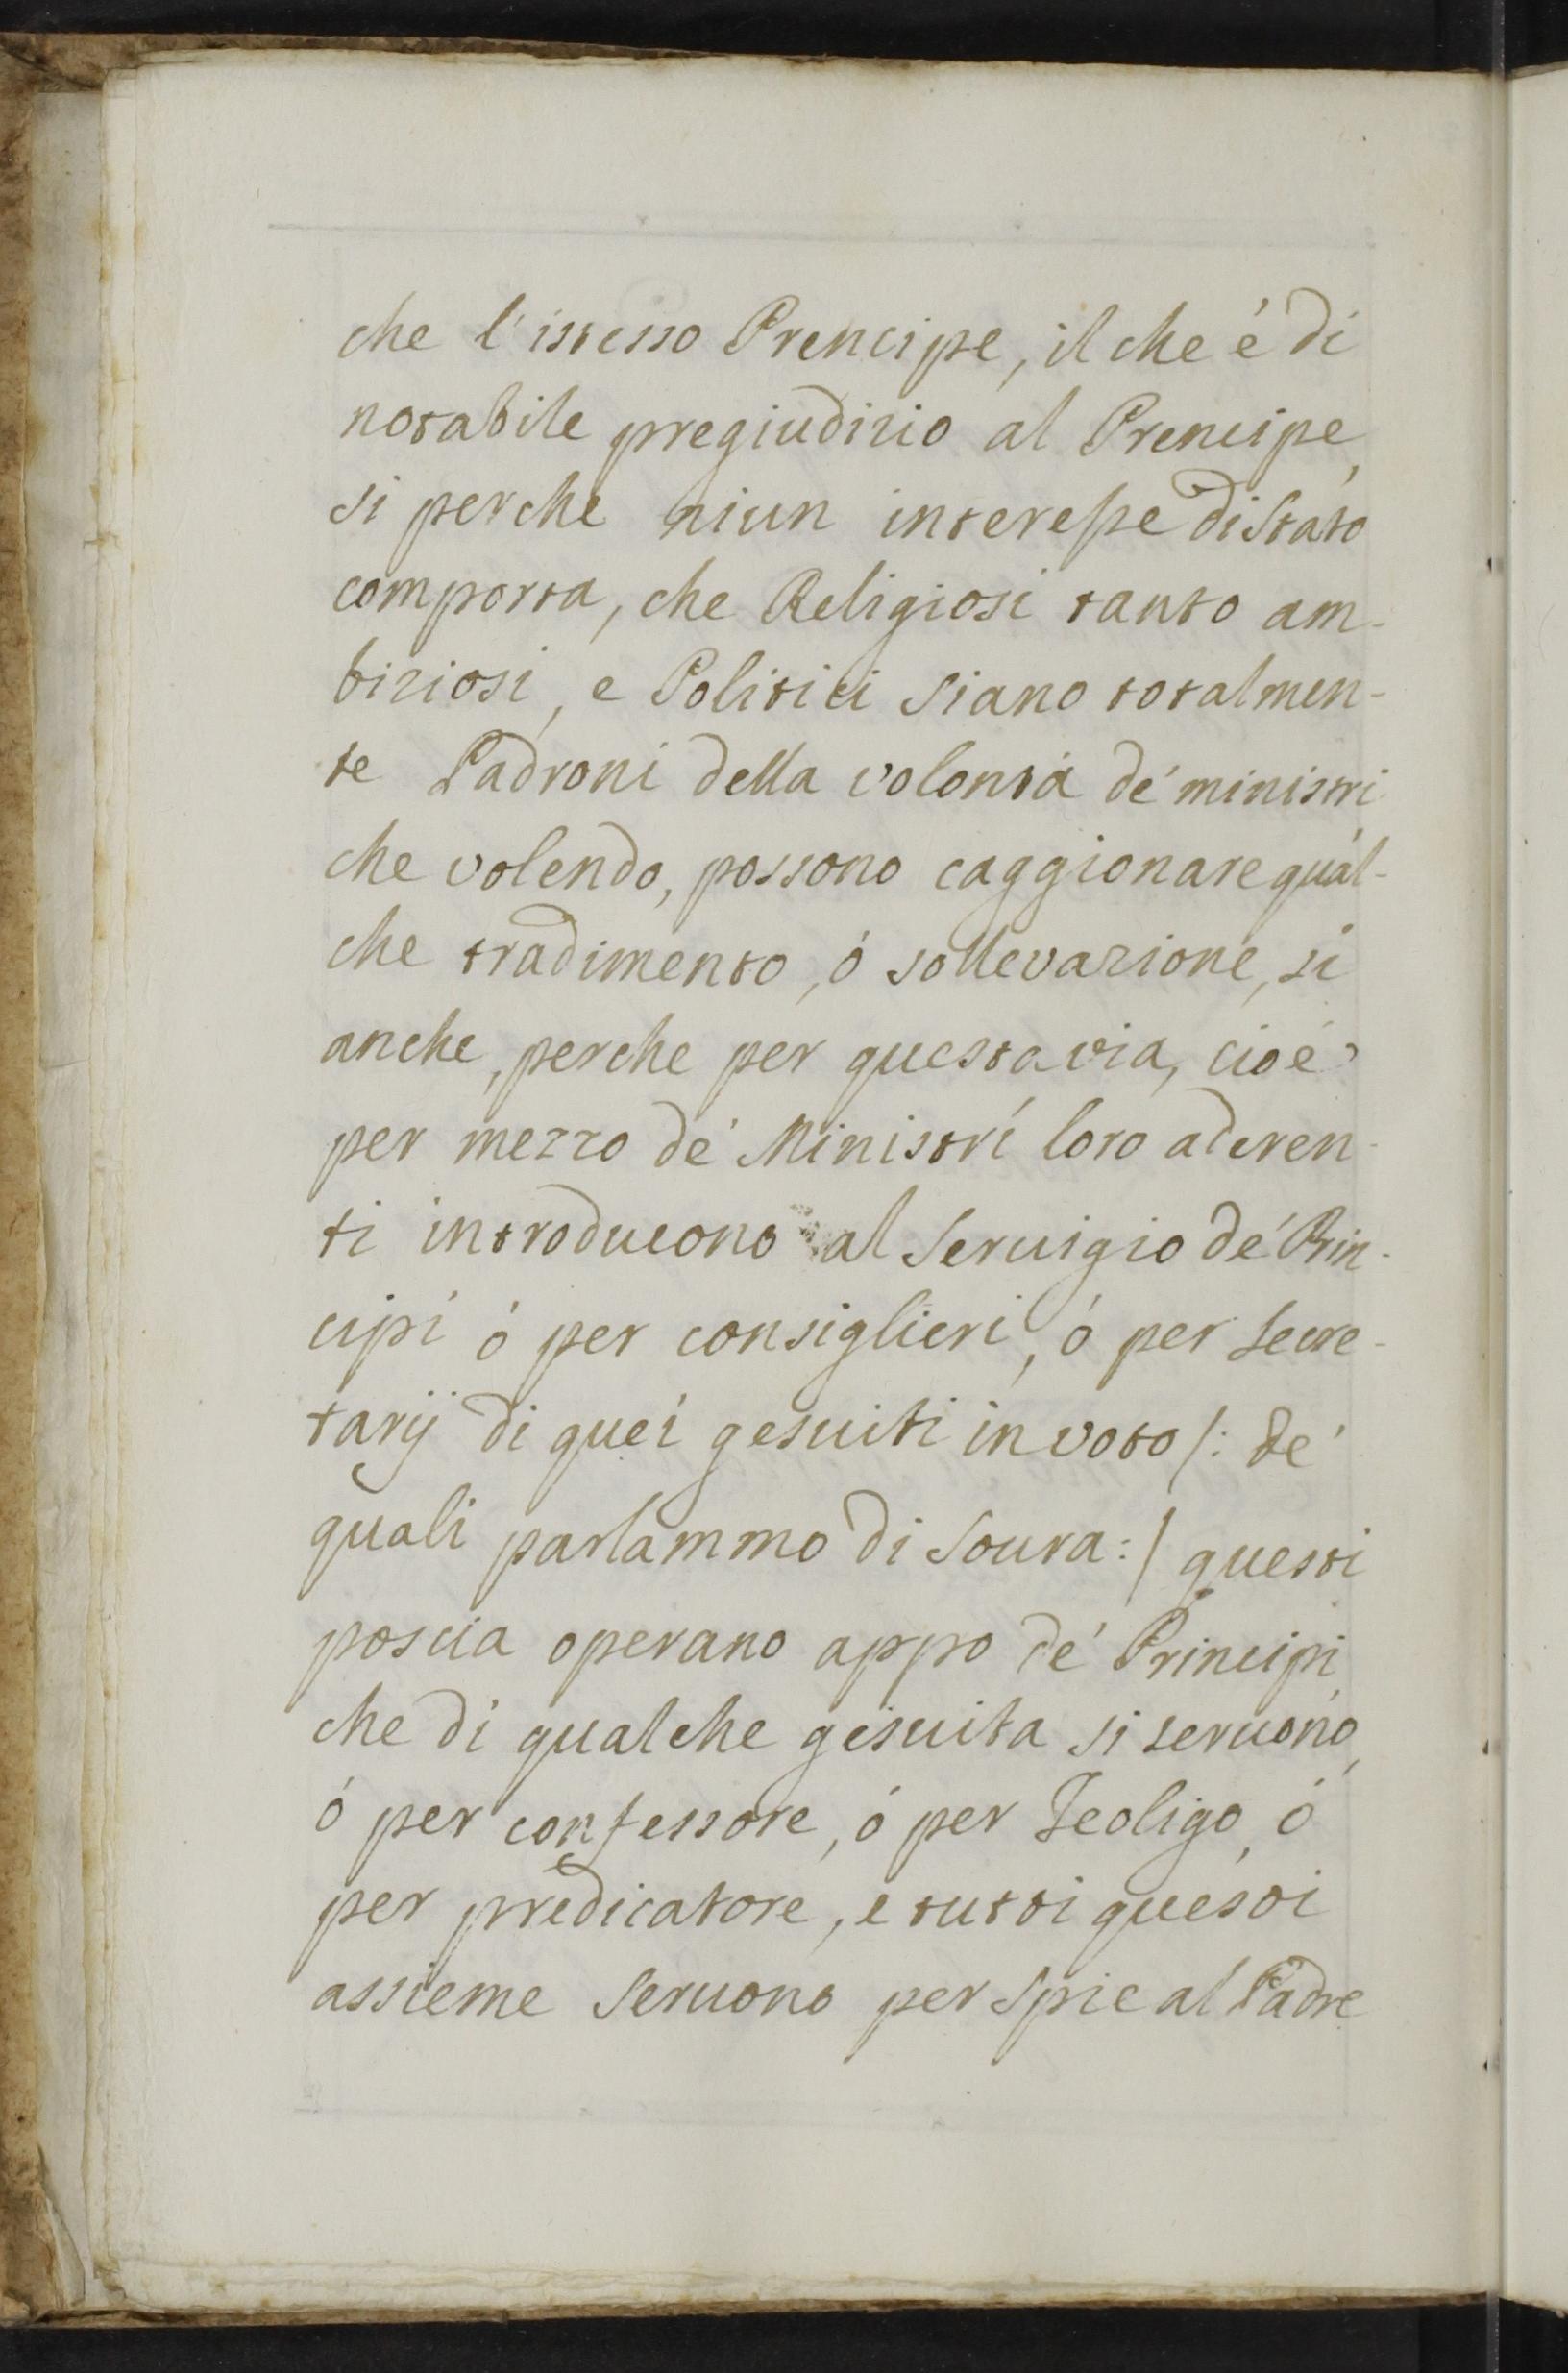 che l'istesso Prencipe, il che é di
notabile pregiudizio al Prencipe,
si perche niun interesse di Stato
comporta, che Religiosi tanto am-
biziosi, e Politici siano totalmen-
te Padroni della volontá dé ministri
che volendo, possono caggionare qual-
che tradimento, ó sollevazione, si
anche, perche per questa via, cioé
per mezzo dé Ministri loro aderen-
ti introducono al Seruigio dé Prin-
cipi ó per consiglieri, ó per Secre-
tarij di quei gesuiti in voto /: dé
quali parlammo di Soura :/ questi
poscia operano appo dé Principi,
che di qualche gesuita si seruono,
ó per confessore, ó per Teoligo, ó
per predicatore, e tutti questi
assieme Seruono per Spie al Padre